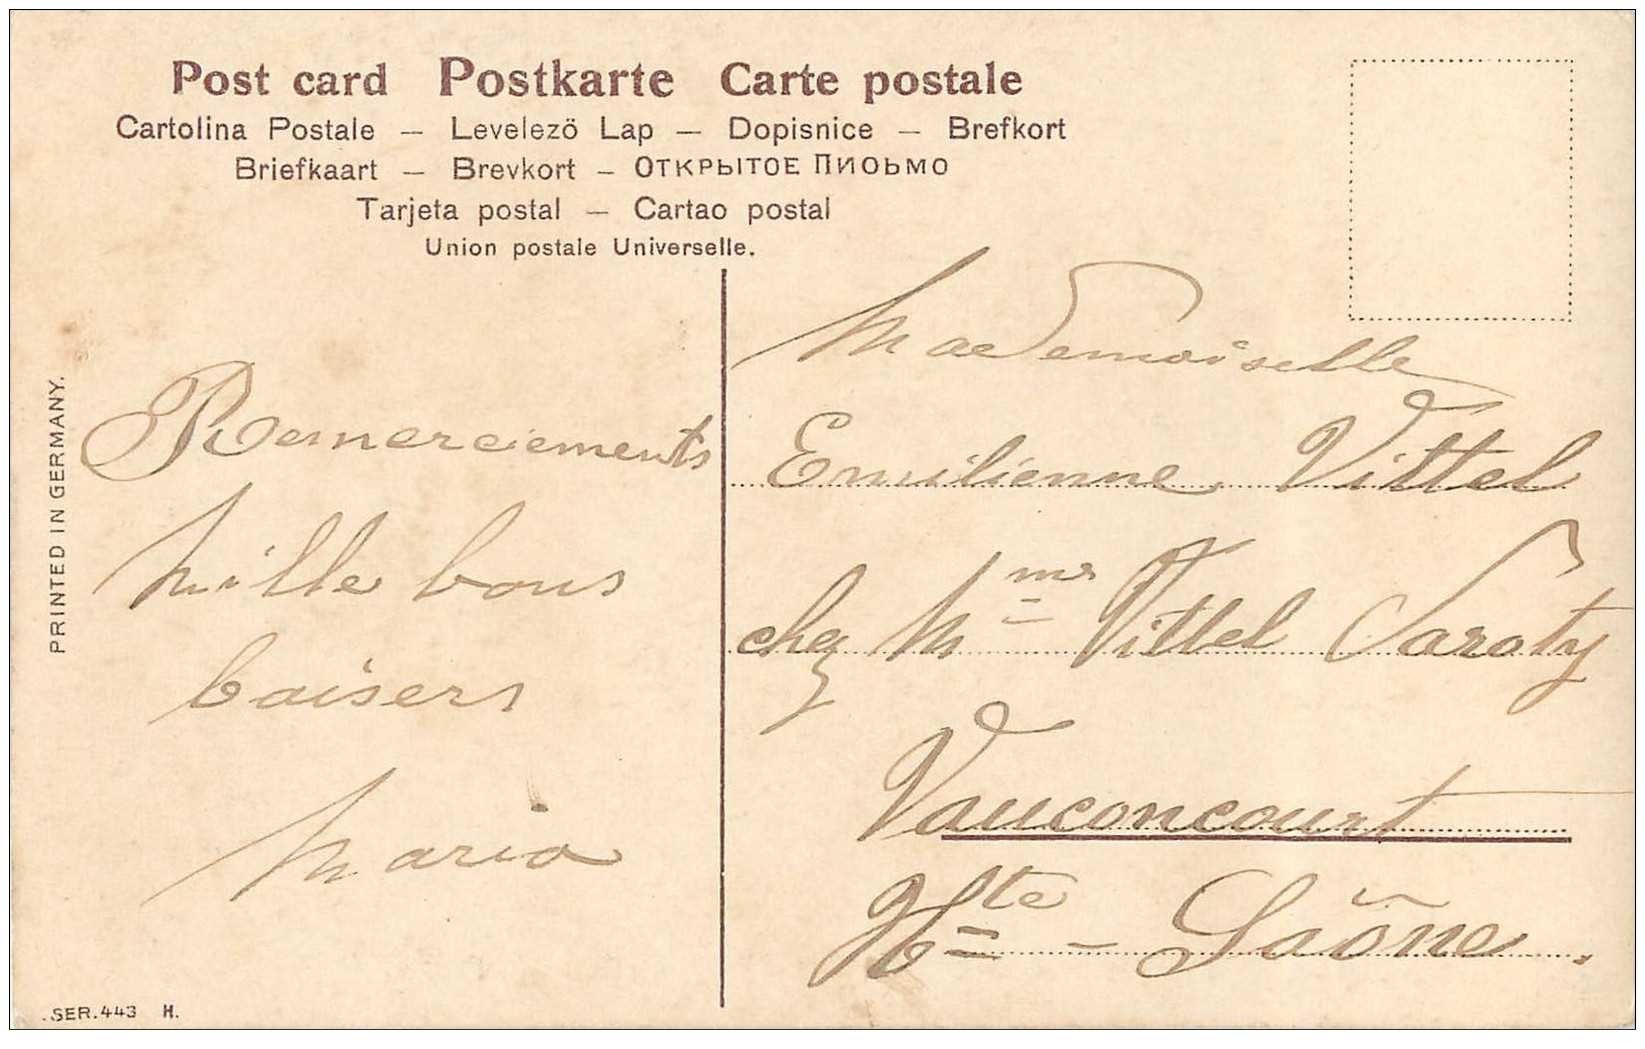 Post card Postkarte Carte postale
Cartolina Postale – Levelezö Lap – Dopisnice – Brefkort
Briefkaart – Brevkort – Открытое Пиоьмо
Tarjeta postal – Cartao postal
Union postale Universelle.
PRINTED IN GERMANY.
Remerciements
Mille bons
baisers
Maria
Mademoiselle
Emilienne Vittel
chez Mme Vittel Saroty
Vauconcourt
Hte - Saône.
.SER.443 H.